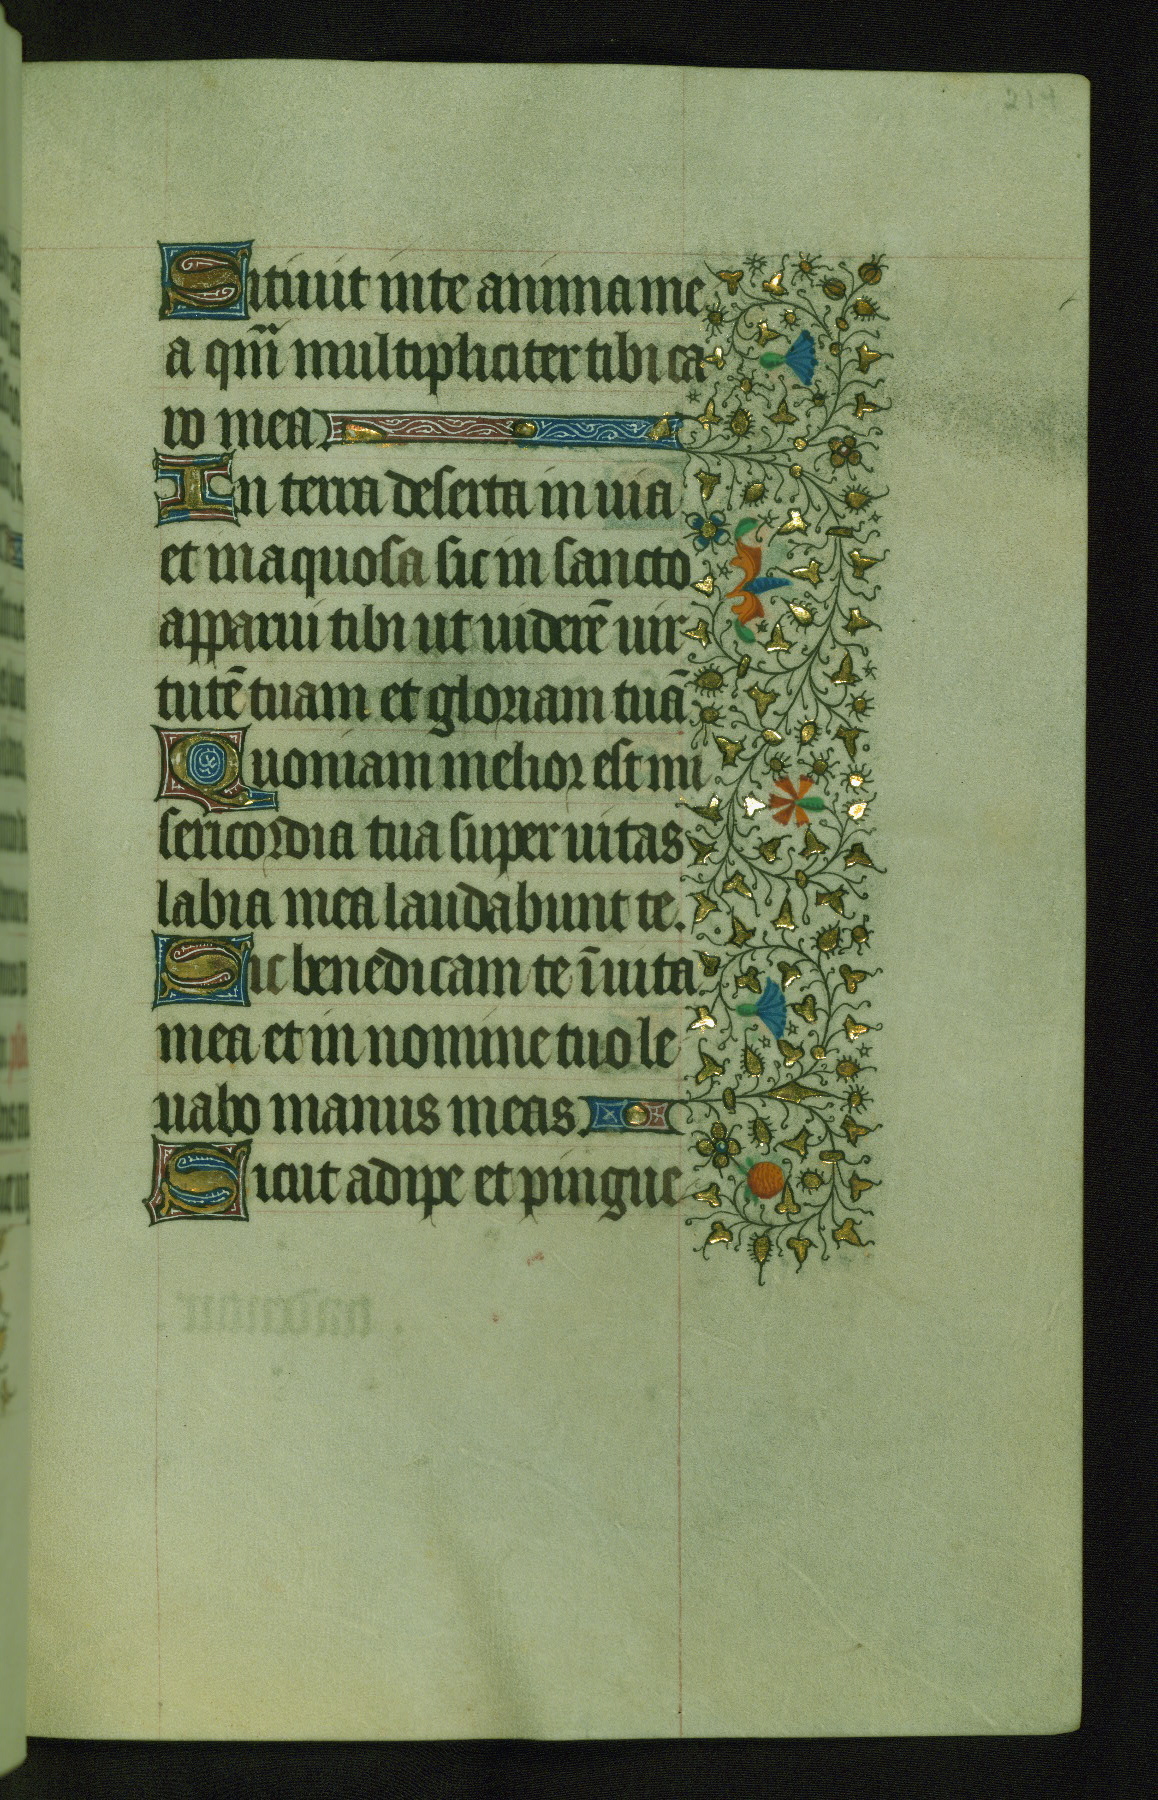 214
Sitiuit in te anima me
a qm̄ multipliciter tibi ca
ro mea
In terra deserta in uia
et inaquosa sic in sancto
apparui tibi ut uiderē uir
tutē tuam et gloriam tuā
Quoniam melior est mi
sericordia tua super uitas
labia mea laudabunt te.
Sic benedicam te ī uita
mea et in nomine tuo le
uabo manus meas
Sicut adipe et pingue